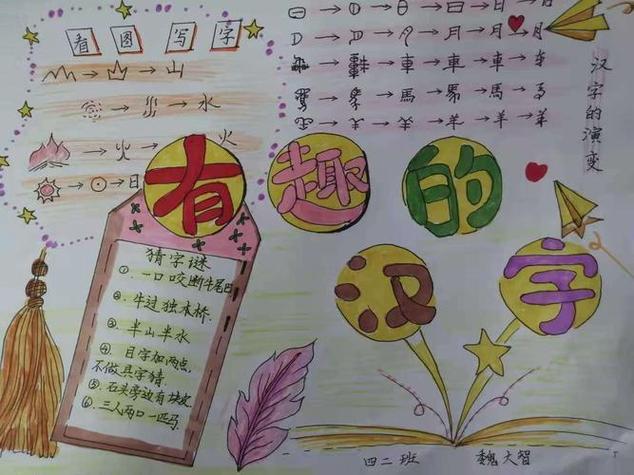 看图写字
山
水
火
日
日 月
車 車
馬 馬
羊 羊 羊
汉字的演变
有趣的
汉字
猜字谜
①.一口咬断牛尾巴
②.牛过独木桥.
③.半山半水
④.目字加两点,
不做具字猜.
⑤.石头旁边有块皮
⑥.三人两口一匹马.
四二班 魏大智